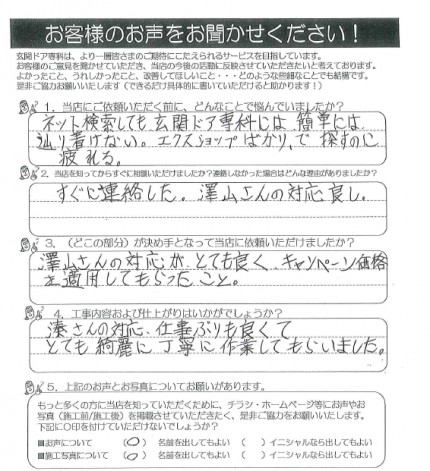 お客様のお声をお聞かせください！
玄関ドア専科は、より一層皆さまのご期待にこたえられるサービスを目指しています。
お客様のご意見を聞かせていただき、当店の今後の活動に反映させていただきたいと考えております。
よかったこと、うれしかったこと、改善してほしいこと・・・どのような些細なことでも結構です。
是非ご協力お願いいたします（できるだけ具体的に書いていただけると助かります！）
1．当店にご依頼いただく前に、どんなことで悩んでいましたか？
ネット検索しても玄関ドア専科には簡単には
辿り着けない。エクスショップばかり、で探すのに
疲れる。
2．当店を知ってからすぐに相談いただけましたか？連絡しなかった場合はどんな理由がありましたか？
すぐに連絡した。澤山さんの対応良し。
3．（どこの部分）が決め手となって当店に依頼いただけましたか？
澤山さんの対応が、とても良く、キャンペーン価格
を適用してもらったこと。
4．工事内容および仕上がりはいかがでしょうか？
湊さんの対応、仕事ぶりも良くて
とても綺麗に丁寧に作業してもらいました。
5．上記のお声とお写真についてお願いがあります。
もっと多くの方に当店を知っていただくために、チラシ・ホームページ等にお声やお
写真（施工前/施工後）を掲載させていただきたく、是非ご協力をお願いいたします。
下記に〇印を付けていただけないでしょうか？
■お声について （〇） 名前を出してもよい （ ） イニシャルなら出してもよい
■施工写真について （〇） 名前を出してもよい （ ） イニシャルなら出してもよい